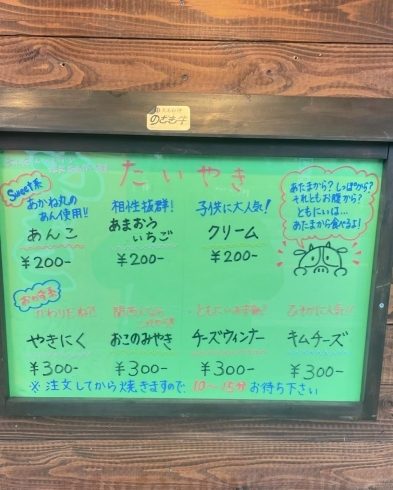 のざき牛
たいやき
Sweet系
あかね丸の
あん使用!!
あんこ
¥200-
相性抜群!
あまおう
いちご
¥200-
子供に大人気!
クリーム
¥200-
あたまから?しっぽから?
それともお腹から?
ともにいは…
あたまから食べるよ!
おかず系
かわりだね!?
やきにく
¥300-
関西なら
おこのみやき
¥300-
チーズウィンナー
¥300-
ひそかに人気!?
キムチーズ
¥300-
※注文してから焼きますので、10〜15分お待ち下さい